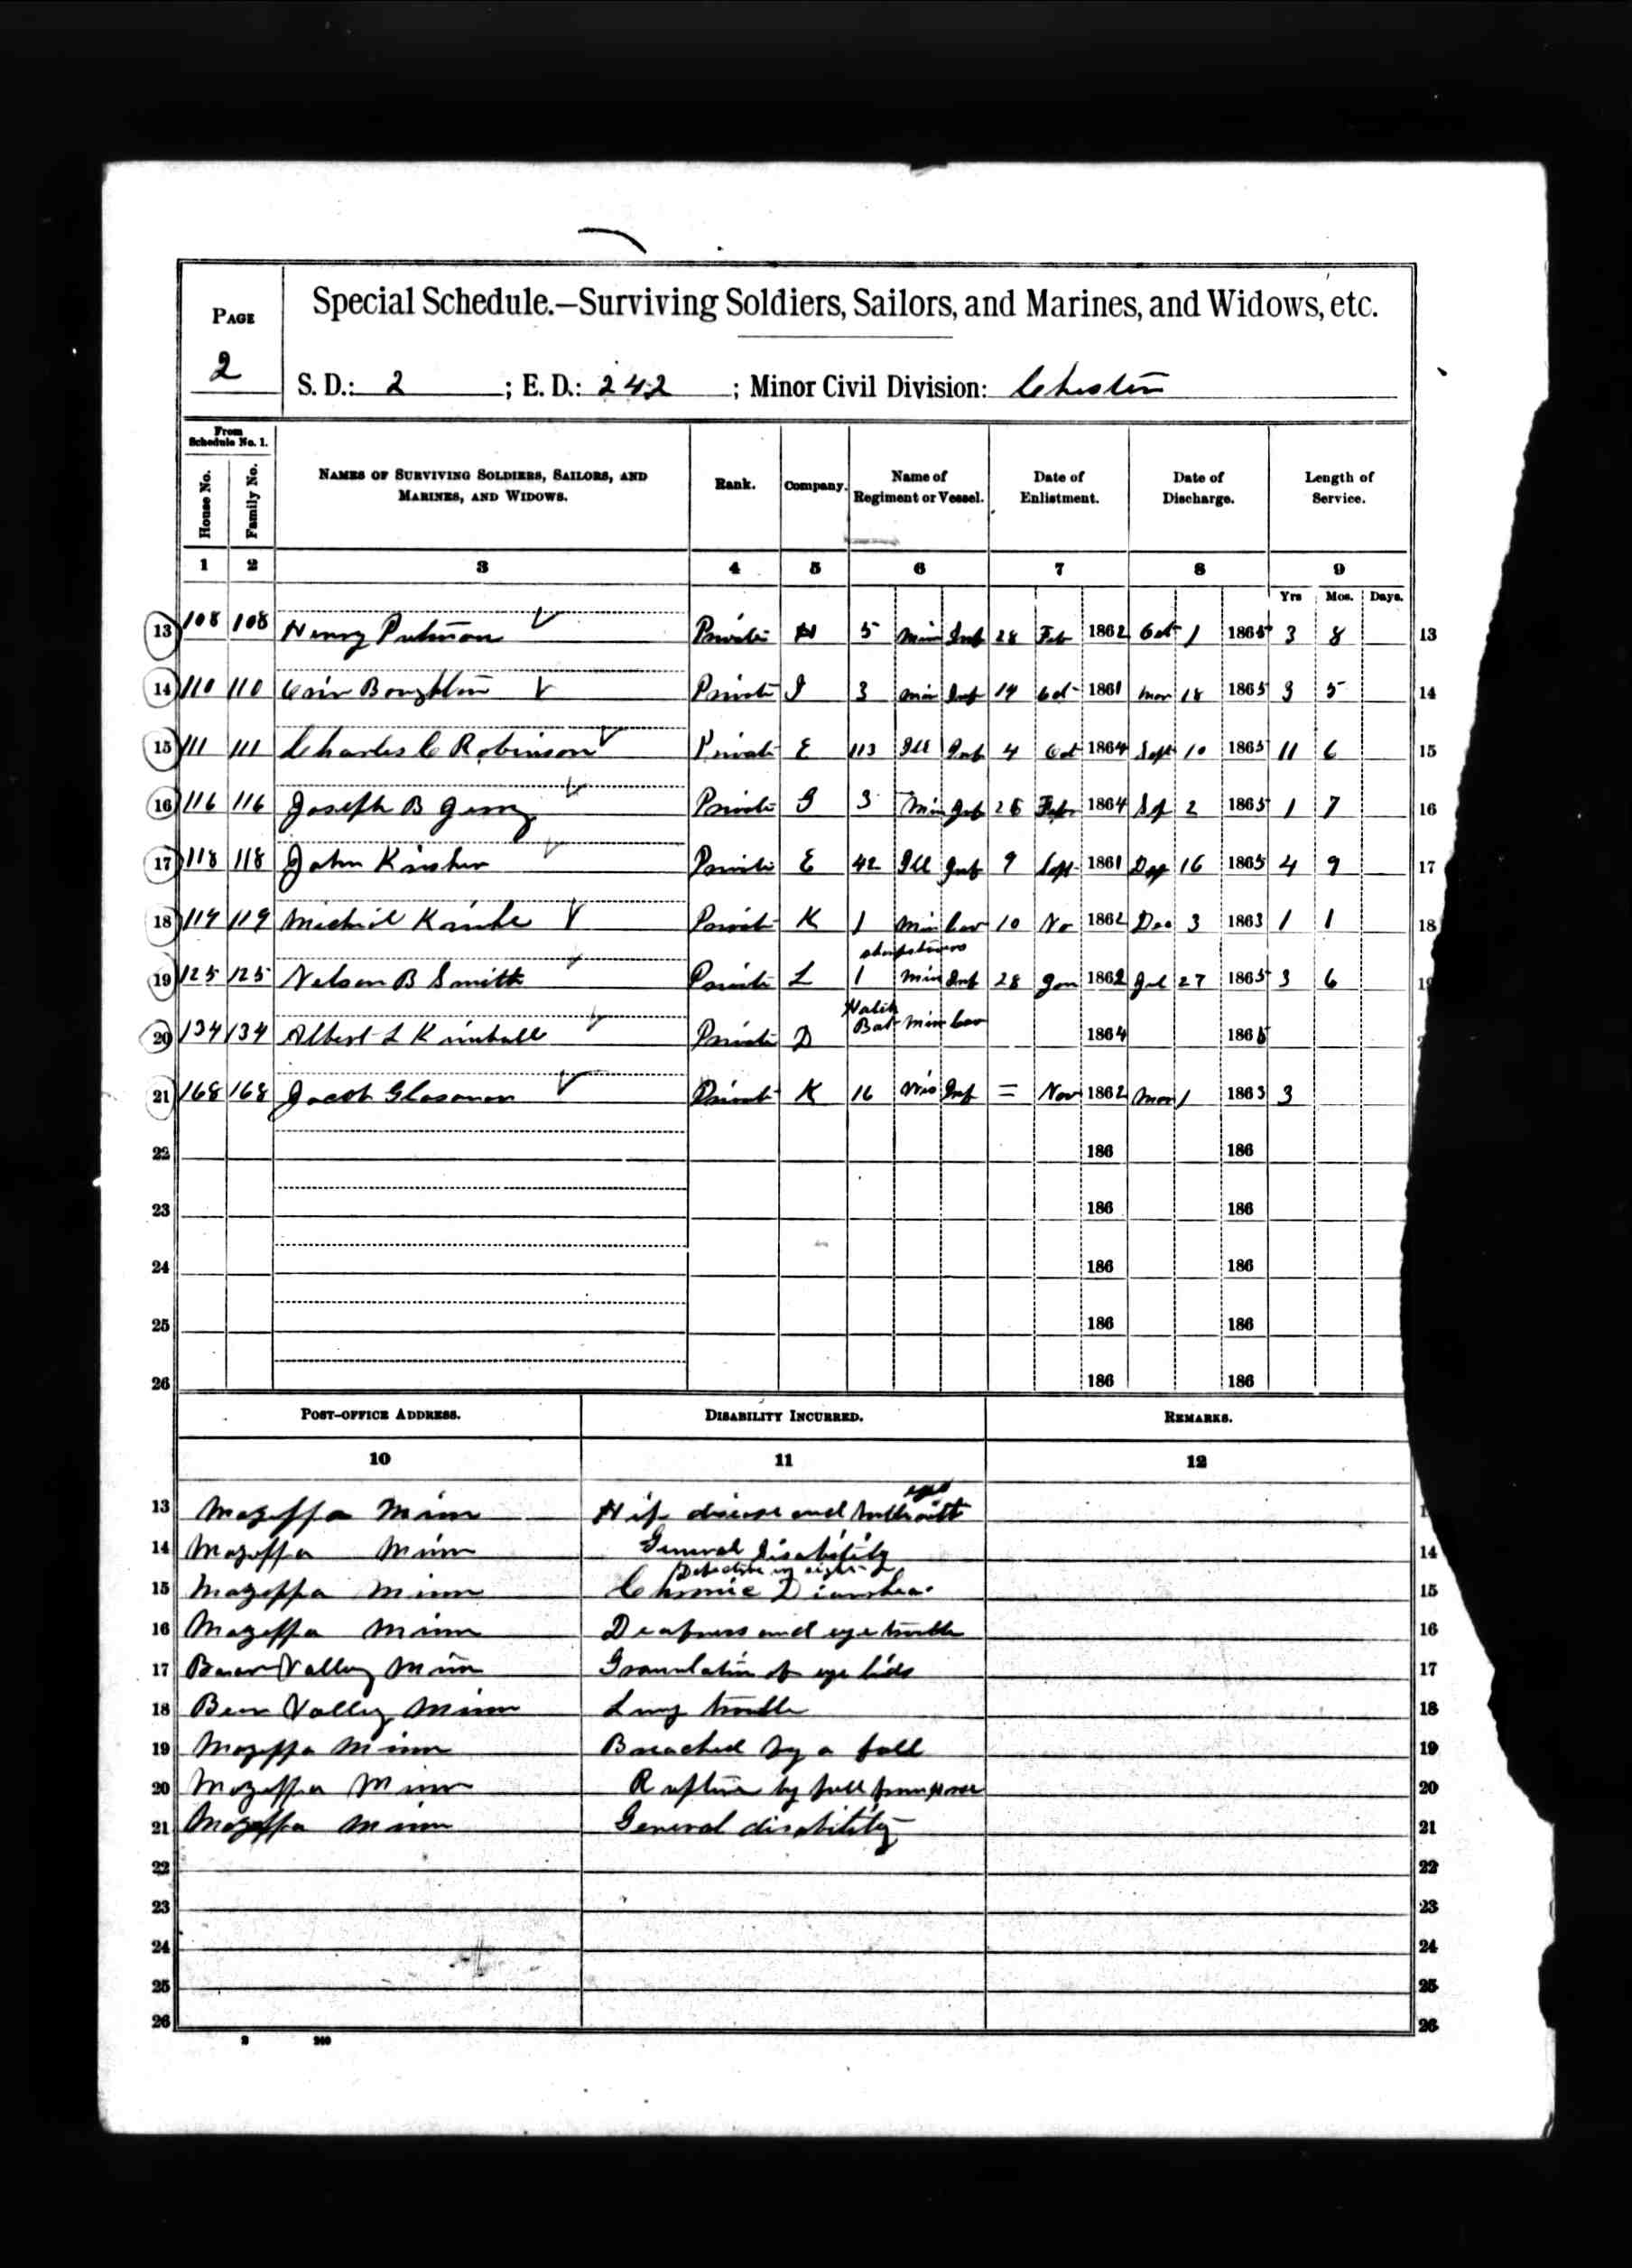 PAGE
2
Special Schedule.—Surviving Soldiers, Sailors, and Marines, and Widows, etc.
S. D.: 2 ; E. D.: 242 ; Minor Civil Division: Chester
From Schedule No. 1.
House No. Family No. NAMES OF SURVIVING SOLDIERS, SAILORS, AND MARINES, AND WIDOWS. Rank. Company. Name of Regiment or Vessel. Date of Enlistment. Date of Discharge. Length of Service.
1 2 3 4 5 6 7 8 9
Yrs Mos. Days.
13 108 108 Henry Putman Private H 5 Min Inf 28 Feb 1862 Oct 1 1865 3 8 13
14 110 110 Boughton Private I 3 Min Inf 14 Oct 1861 Mar 18 1865 3 5 14
15 111 111 Charles C Robinson Private E 113 Ill Inf 4 Oct 1864 Sept 10 1865 11 6 15
16 116 116 Joseph B Private G 3 Min Inf 1864 Sep 2 1865 1 7 16
17 118 118 John Private E 42 Ill Inf 9 Sept 1861 16 1865 4 9 17
18 119 119 Private K 1 Min Cav 10 No 1862 Dec 3 1863 1 1 18
sharpshooters
19 125 125 Nelson B Smith Private L 1 Min Inf 28 Jan 1862 Jul 27 1865 3 6
Hatch
20 134 134 Albert L Kimball Private D Bat Min Cav 1864 1865
21 168 168 Jacob Private K 16 Wis Inf = Nov 1862 Mar 1 1863 3
22 186 186
23 186 186
24 186 186
25 186 186
26 186 186
POST-OFFICE ADDRESS. DISABILITY INCURRED. REMARKS.
10 11 12
eyes
13 Mazeppa Minn Hip disease and trouble with
14 Mazeppa Minn General disability 14
Defective eye sight
15 Mazeppa Minn Chronic Diarrhea 15
16 Mazeppa Minn Deafness and eye trouble 16
17 Bear Valley Minn Granulation of eye lids 17
18 Bear Valley Minn Lung trouble 18
19 Mazeppa Minn Breached by a fall 19
20 Mazeppa Minn Rupture by fall from horse 20
21 Mazeppa Minn General disability 21
22 22
23 23
24 24
25 25
26 26